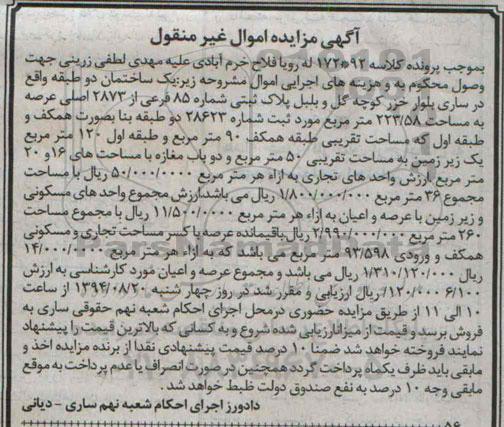 آگهی مزایده اموال غیر منقول
بموجب پرونده کلاسه ۱۷۲۰۹۲ له رویا فلاح خرم آبادی علیه مهدی لطفی زرینی جهت
وصول محکوم به و هزینه های اجرایی اموال مشروحه زیر:یک ساختمان دو طبقه واقع
در ساری بلوار خزر کوچه گل و بلبل پلاک ثبتی شماره ۸۵ فرعی از ۲۸۷۳ اصلی عرصه
به مساحت ۲۲۳/۵۸ متر مربع مورد ثبت شماره ۲۸۶۲۳ دو طبقه بنا بصورت همکف و
طبقه اول که مساحت تقریبی طبقه همکف ۹۰ متر مربع و طبقه اول ۱۲۰ متر مربع
یک زیر زمین به مساحت تقریبی ۵۰ متر مربع و دو باب مغازه با مساحت های ۱۶و ۲۰
متر مربع ارزش واحد های تجاری به ازاء هر متر مربع ۵۰/۰۰۰/۰۰۰۰ ریال با مساحت
مجموع ۳۶ متر مربع ۱/۸۰۰/۰۰۰/۰۰۰ ریال می باشد.ارزش مجموع واحد های مسکونی
و زیر زمین با عرصه و اعیان به ازاء هر متر مربع ۱۱/۵۰۰/۰۰۰۰ ریال با مجموع مساحت
۲۶۰ متر مربع ۲/۹۹۰/۰۰۰/۰۰۰ ریال.باقیمانده عرصه با کسر مساحت تجاری و مسکونی
همکف و ورودی ۹۳/۵۹۸ متر مربع می باشد که به ازاء هر متر مربع ۱۴/۰۰۰/۰۰۰
۱/۳۱۰/۱۲۰/۰۰۰ ریال می باشد و مجموع عرصه و اعیان مورد کارشناسی به ارزش
۶/۱۰۰/۱۲۰/۰۰۰ ریال ارزیابی و مقرر شد در روز چهار شنبه ۱۳۹۴/۰۸/۲۰ از ساعت
۱۰ الی ۱۱ از طریق مزایده حضوری درمحل اجرای احکام شعبه نهم حقوقی ساری به
فروش برسد و قیمت از میزان ارزیابی شده شروع و به کسانی که بالاترین قیمت را پیشنهاد
نمایند فروخته خواهد شد ضمنا ۱۰ درصد قیمت پیشنهادی نقدا از برنده مزایده اخذ و
مابقی باید ظرف یکماه پرداخت گردد همچنین در صورت انصراف یا عدم پرداخت به موقع
مابقی وجه ۱۰ درصد به نفع صندوق دولت ظبط خواهد شد.
دادورز اجرای احکام شعبه نهم ساری - دیانی